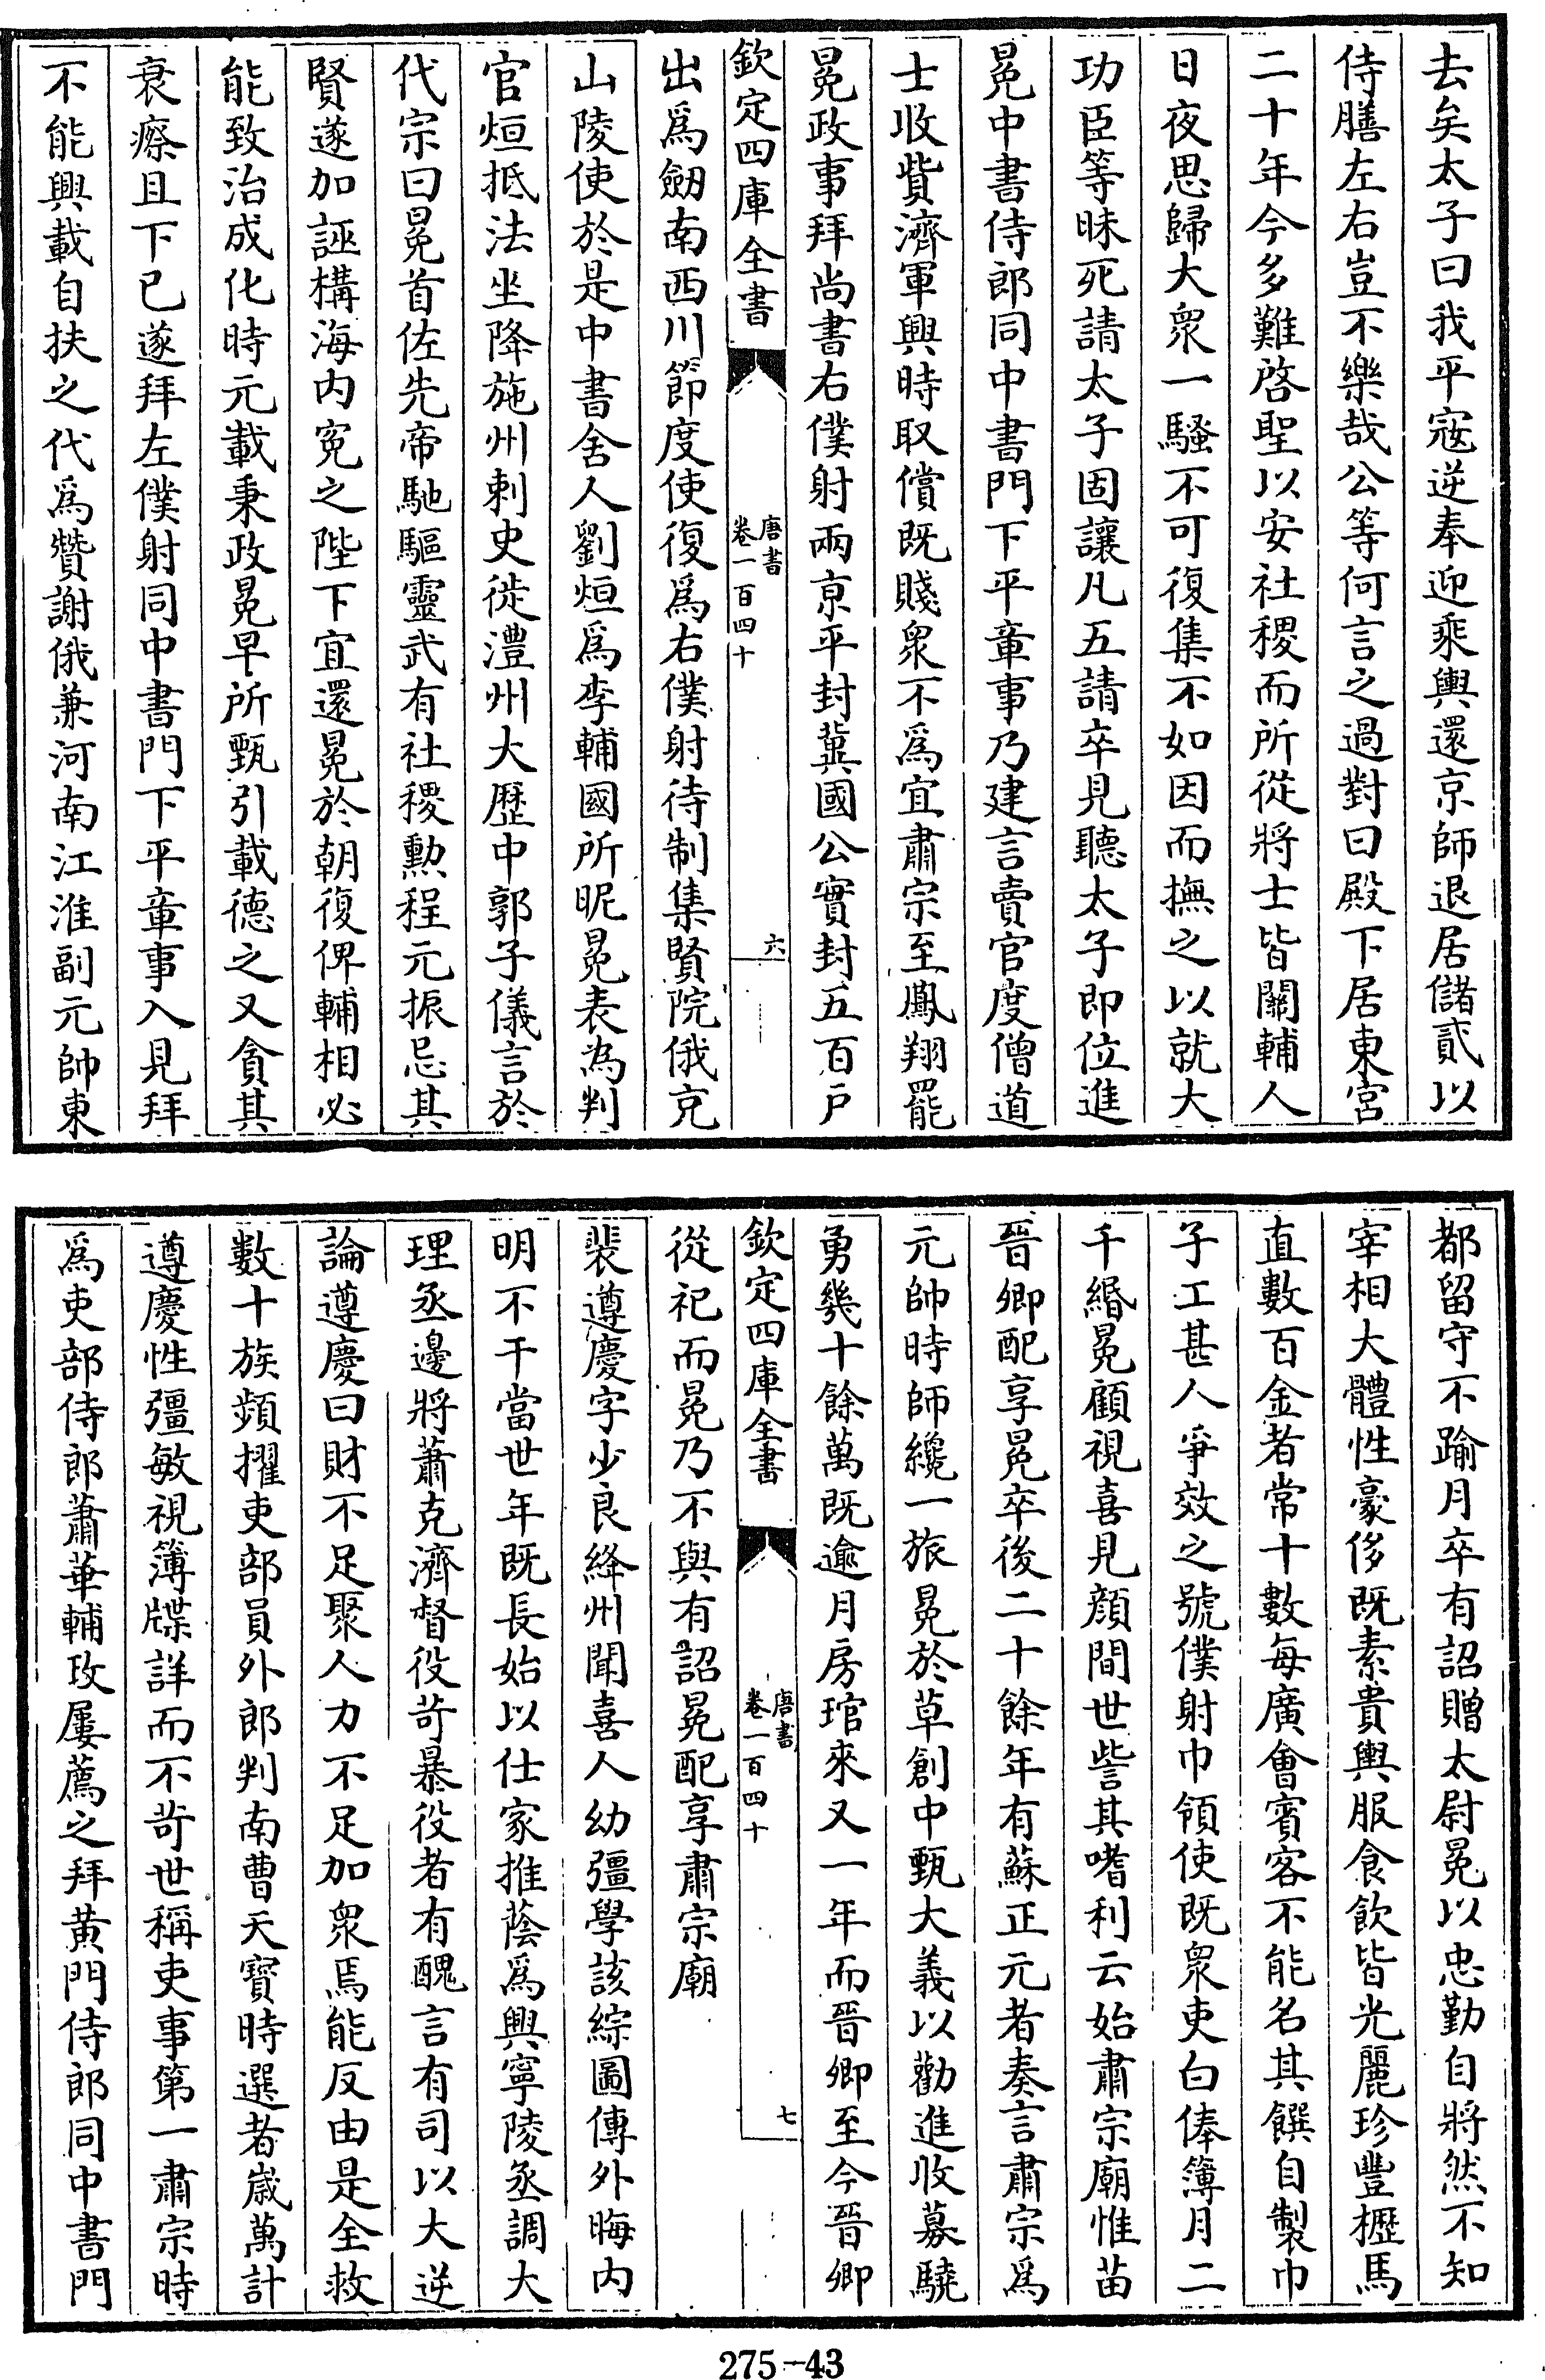 去矣太子曰我平寇逆奉迎乘輿還京師退居儲貳以
侍膳左右豈不樂哉公等何言之過對曰殿下居東宮
二十年今多難啓聖以安社稷而所從將士皆關輔人
日夜思歸大衆一騷不可復集不如因而撫之以就大
功臣等昧死請太子固讓凡五請卒見聽太子即位進
冕中書侍郎同中書門下平章事乃建言賣官度僧道
士收貲濟軍興時取償既賤衆不為宜肅宗至鳳翔罷
冕政事拜尚書右僕射兩京平封冀國公實封五百戶
欽定四庫全書
唐書
卷一百四十
六
出為劒南西川節度使復為右僕射待制集賢院俄充
山陵使於是中書舍人劉烜為李輔國所昵冕表為判
官烜抵法坐降施州刺史徙澧州大歷中郭子儀言於
代宗曰冕首佐先帝馳驅靈武有社稷勲程元振忌其
賢遂加誣構海内寃之陛下宜還冕於朝復俾輔相必
能致治成化時元載秉政冕早所甄引載德之又貪其
衰瘵且下已遂拜左僕射同中書門下平章事入見拜
不能興載自扶之代為贊謝俄兼河南江淮副元帥東
都留守不踰月卒有詔贈太尉冕以忠勤自將然不知
宰相大體性豪侈既素貴輿服食飲皆光麗珍豐櫪馬
直數百金者常十數每廣會賓客不能名其饌自製巾
子工甚人爭效之號僕射巾領使既衆吏白俸簿月二
千緡冕顧視喜見顔間世訾其嗜利云始肅宗廟惟苗
晉卿配享冕卒後二十餘年有蘇正元者奏言肅宗為
元帥時師纔一旅冕於草創中甄大義以勸進收募驍
勇幾十餘萬既逾月房琯來又一年而晉卿至今晉卿
欽定四庫全書
唐書
卷一百四十
七
從祀而冕乃不與有詔冕配享肅宗廟
裴遵慶字少良絳州聞喜人幼彊學該綜圖傳外晦内
明不干當世年既長始以仕家推蔭為興寧陵丞調大
理丞邊將蕭克濟督役苛暴役者有醜言有司以大逆
論遵慶曰財不足聚人力不足加衆焉能反由是全救
數十族頻擢吏部員外郎判南曹天寶時選者歲萬計
遵慶性彊敏視簿牒詳而不苛世稱吏事第一肅宗時
為吏部侍郎蕭華輔政屢薦之拜黄門侍郎同中書門
275-43